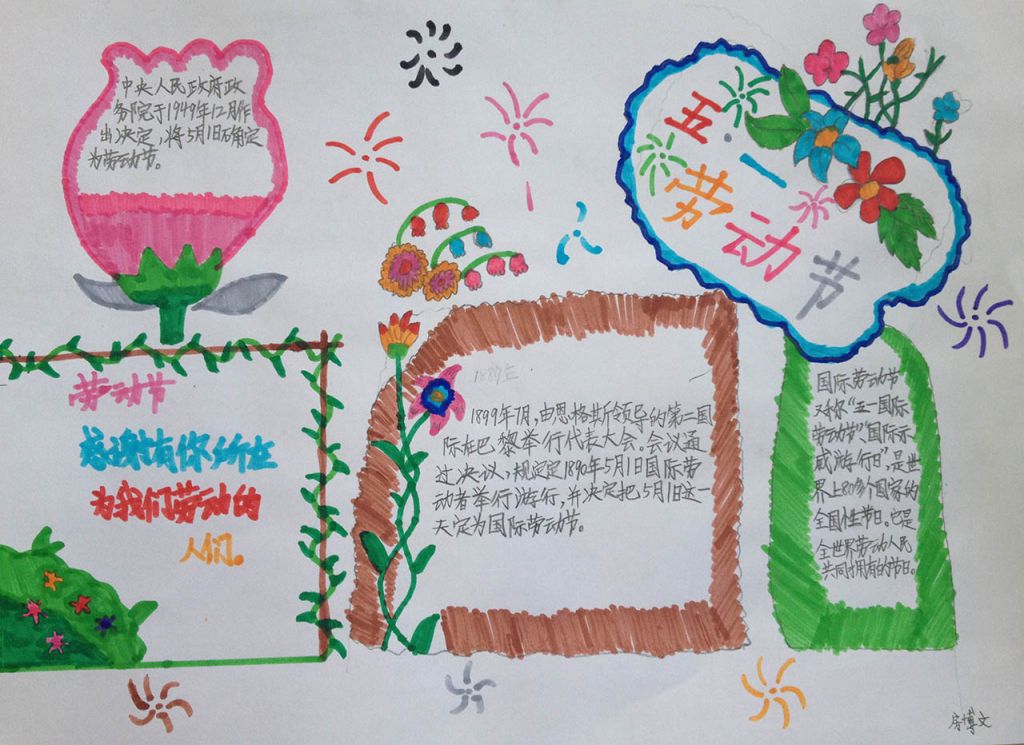 中央人民政府政
务院于1949年12月作
出决定,将5月1日确定
为劳动节。
五·一
劳动节
劳动节
感谢有你们在
为我们劳动的
人们。
1889年
1899年7月,由恩格斯领导的第二国
际在巴黎举行代表大会。会议通
过决议,规定定1890年5月1日国际劳
动者举行游行,并决定把5月1日这一
天定为国际劳动节。
国际劳动节
又称“五一国际
劳动节”、国际示
威游行日”,是世
界上80多个国家的
全国性节日。它是
全世界劳动人民
共同拥有的节日。
房博文